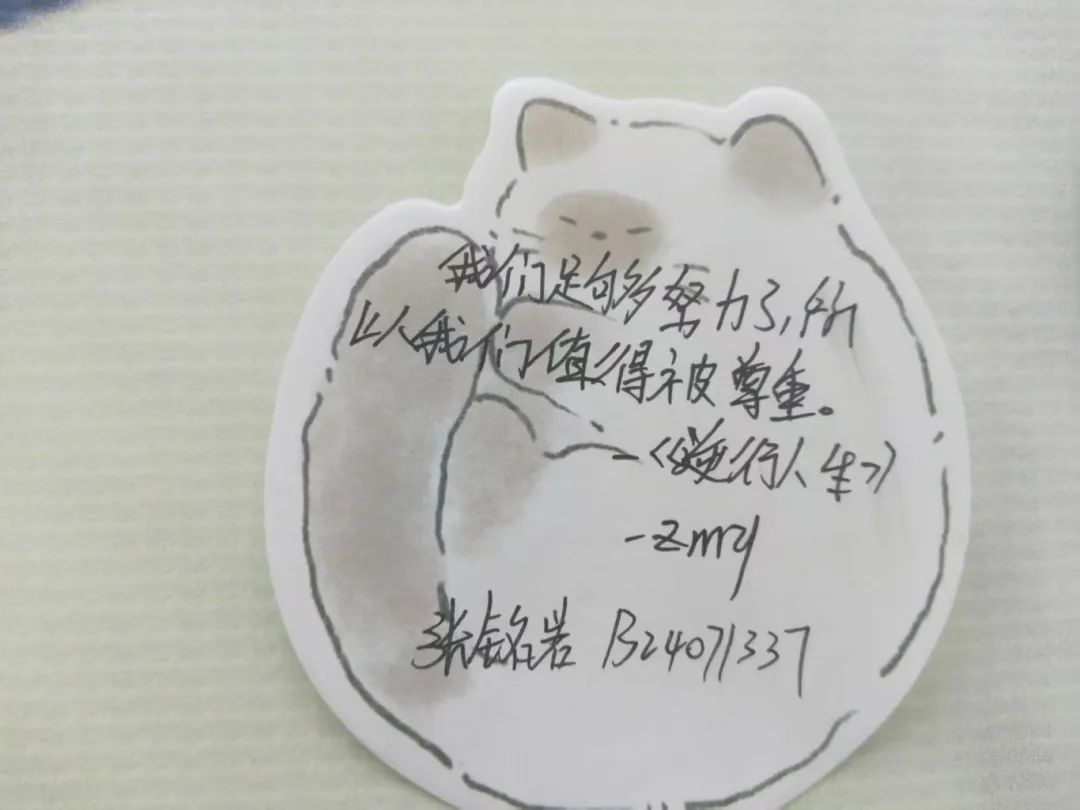 我们足够努力了,所
以我们值得被尊重。
-《逆行人生》
-zmy
张铭岩 B24071337